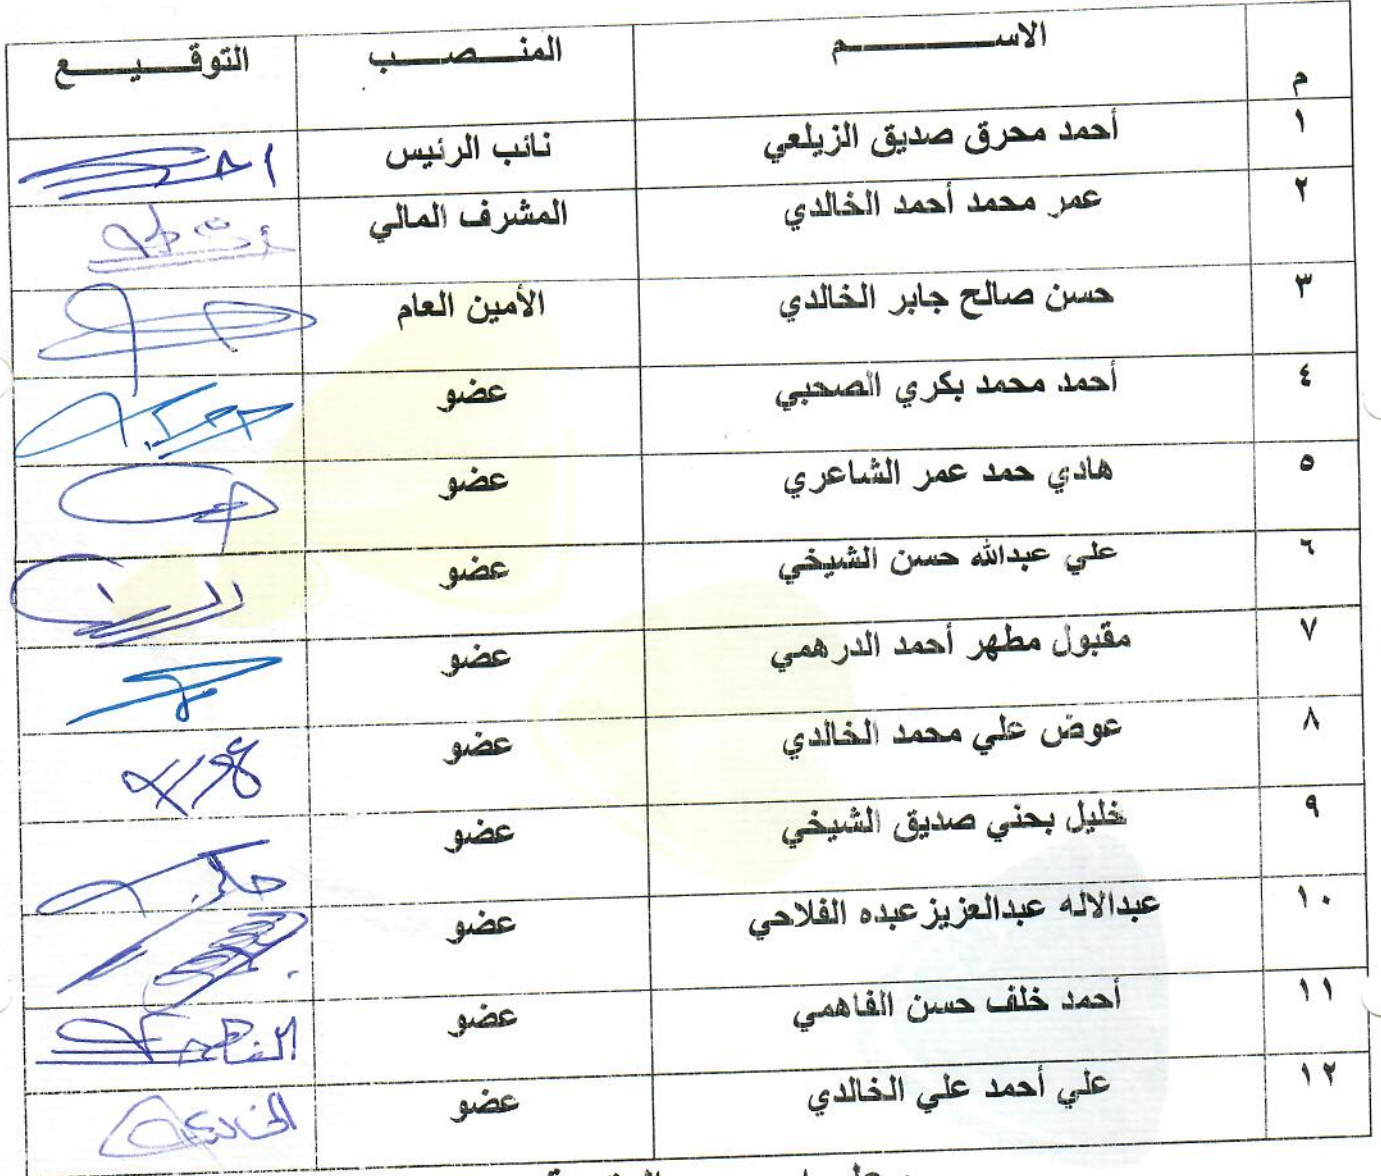 م الاســـــــم المنـــصـــب التوقـــيـــــع
١ أحمد محرق صديق الزيلعي نائب الرئيس
٢ عمر محمد أحمد الخالدي المشرف المالي
٣ حسن صالح جابر الخالدي الأمين العام
٤ أحمد محمد بكري الصحبي عضو
٥ هادي حمد عمر الشاعري عضو
٦ علي عبدالله حسن الشيخي عضو
٧ مقبول مطهر أحمد الدرهمي عضو
٨ عوض علي محمد الخالدي عضو
٩ خليل بحني صديق الشيخي عضو
١٠ عبدالاله عبدالعزيز عبده الفلاحي عضو
١١ أحمد خلف حسن الفاهمي عضو
١٢ علي أحمد علي الخالدي عضو الخالدي